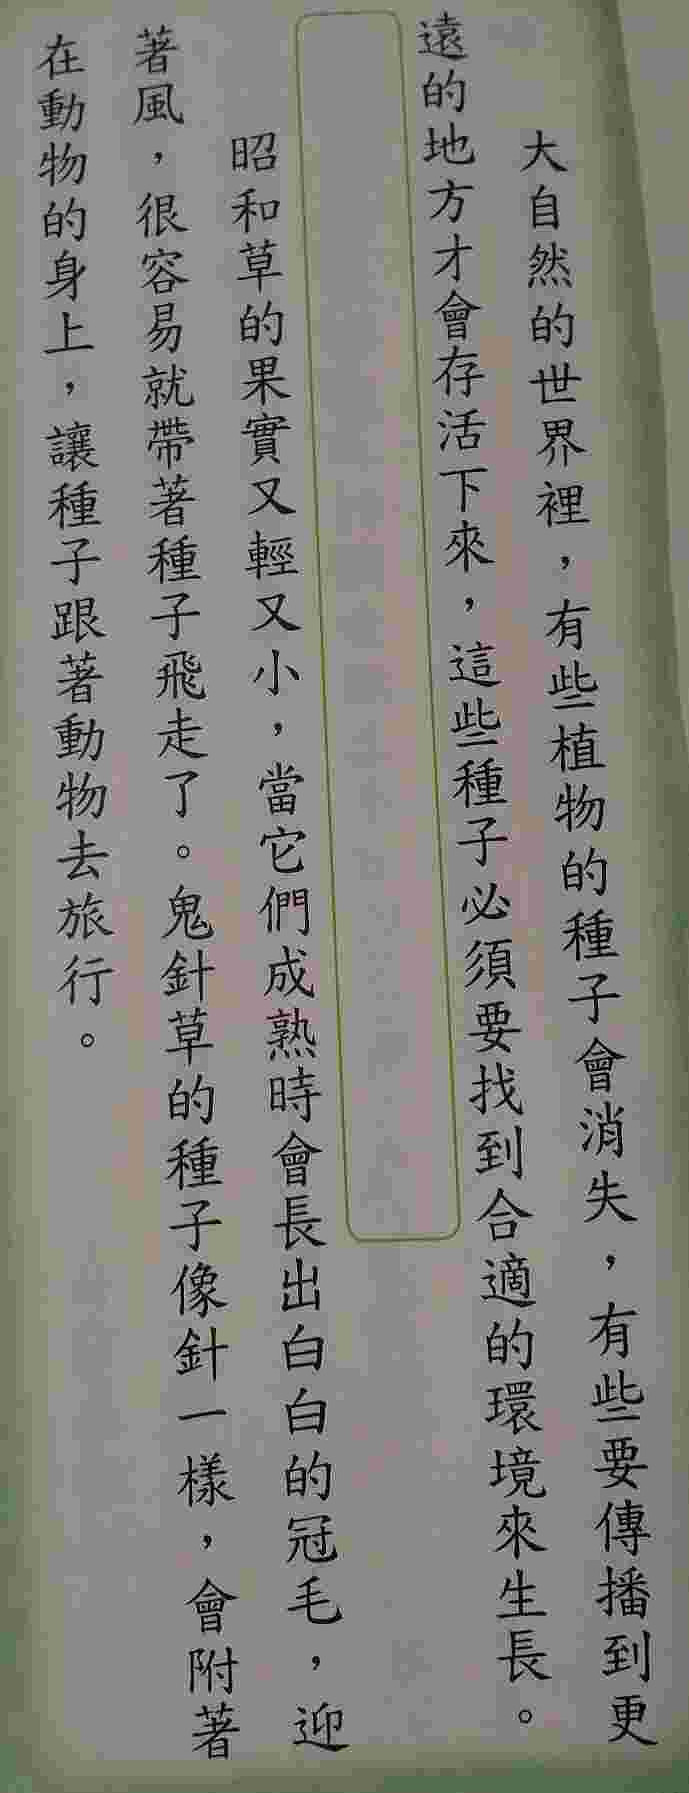 大自然的世界裡，有些植物的種子會消失，有些要傳播到更
遠的地方才會存活下來，這些種子必須要找到合適的環境來生長。
昭和草的果實又輕又小，當它們成熟時會長出白白的冠毛，迎
著風，很容易就帶著種子飛走了。鬼針草的種子像針一樣，會附著
在動物的身上，讓種子跟著動物去旅行。